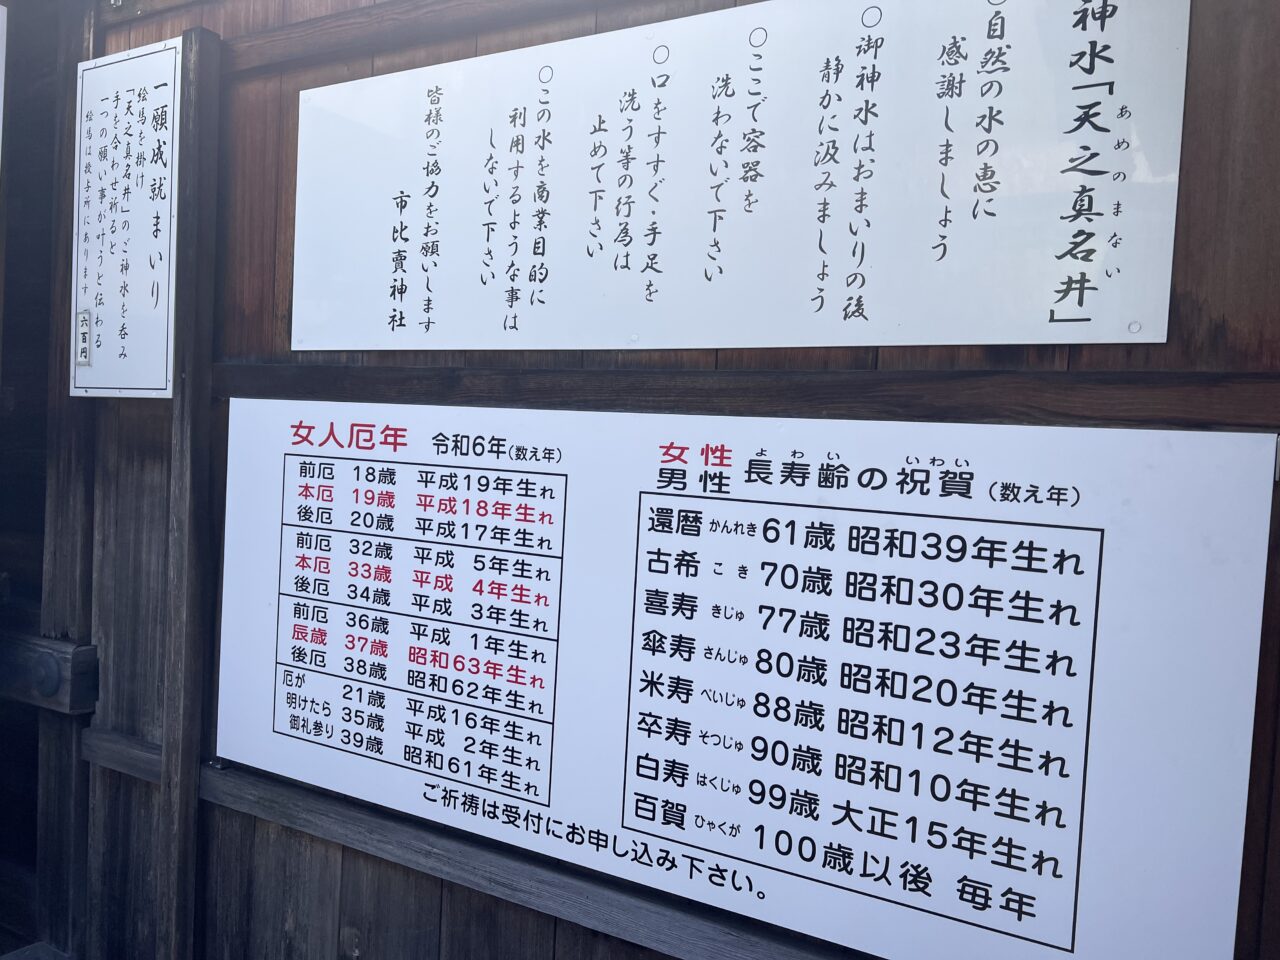 一願成就まいり
絵馬を掛け
「天之真名井」のご神水を呑み
手を合わせ祈ると
一つの願い事が叶うと伝わる
絵馬は授与所にあります 六百円
神水「天之真名井」
あめのまない
○自然の水の恵に
感謝しましょう
○御神水はおまいりの後
静かに汲みましょう
○ここで容器を
洗わないで下さい
○口をすすぐ・手足を
洗う等の行為は
止めて下さい
○この水を商業目的に
利用するような事は
しないで下さい
皆様のご協力をお願いします
市比賣神社
女人厄年 令和6年(数え年)
前厄 18歳 平成19年生れ
本厄 19歳 平成18年生れ
後厄 20歳 平成17年生れ
前厄 32歳 平成 5年生れ
本厄 33歳 平成 4年生れ
後厄 34歳 平成 3年生れ
前厄 36歳 平成 1年生れ
辰歳 37歳 昭和63年生れ
後厄 38歳 昭和62年生れ
厄が 21歳 平成16年生れ
明けたら 35歳 平成 2年生れ
御礼参り 39歳 昭和61年生れ
女性
男性 長寿齢の祝賀(数え年)
よわい いわい
還暦 かんれき 61歳 昭和39年生れ
古希 こき 70歳 昭和30年生れ
喜寿 きじゅ 77歳 昭和23年生れ
傘寿 さんじゅ 80歳 昭和20年生れ
米寿 べいじゅ 88歳 昭和12年生れ
卒寿 そつじゅ 90歳 昭和10年生れ
白寿 はくじゅ 99歳 大正15年生れ
百賀 ひゃくが 100歳以後 毎年
ご祈祷は受付にお申し込み下さい。